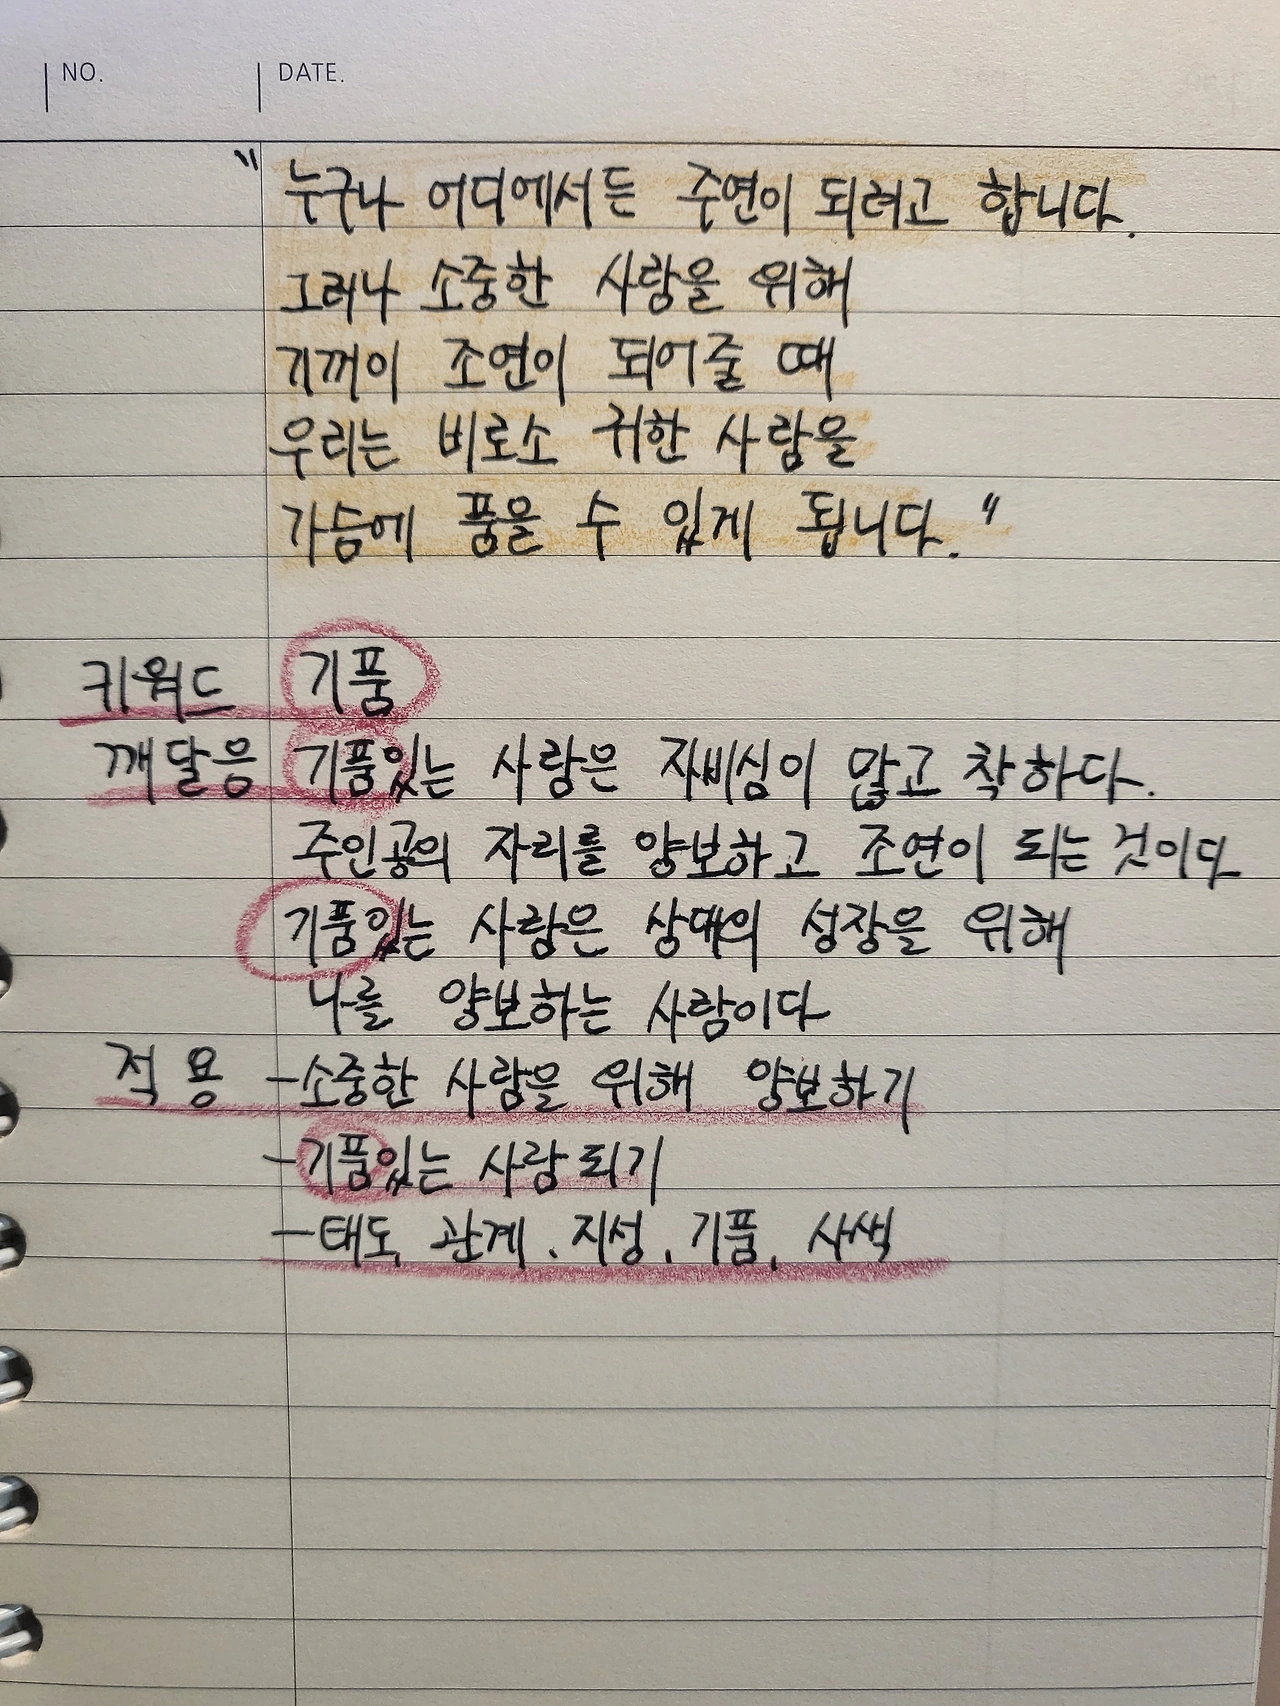 NO. DATE.
"누구나 어디에서든 주연이 되려고 합니다.
그러나 소중한 사람을 위해
기꺼이 조연이 되어줄 때
우리는 비로소 귀한 사람을
가슴에 품을 수 있게 됩니다."
키워드 기품
깨달음 기품있는 사람은 자비심이 많고 착하다.
주인공의 자리를 양보하고 조연이 되는 것이다
기품있는 사람은 상대의 성장을 위해
나를 양보하는 사람이다
적용 -소중한 사람을 위해 양보하기
-기품있는 사람 되기
-태도, 관계, 지성, 기품, 사색